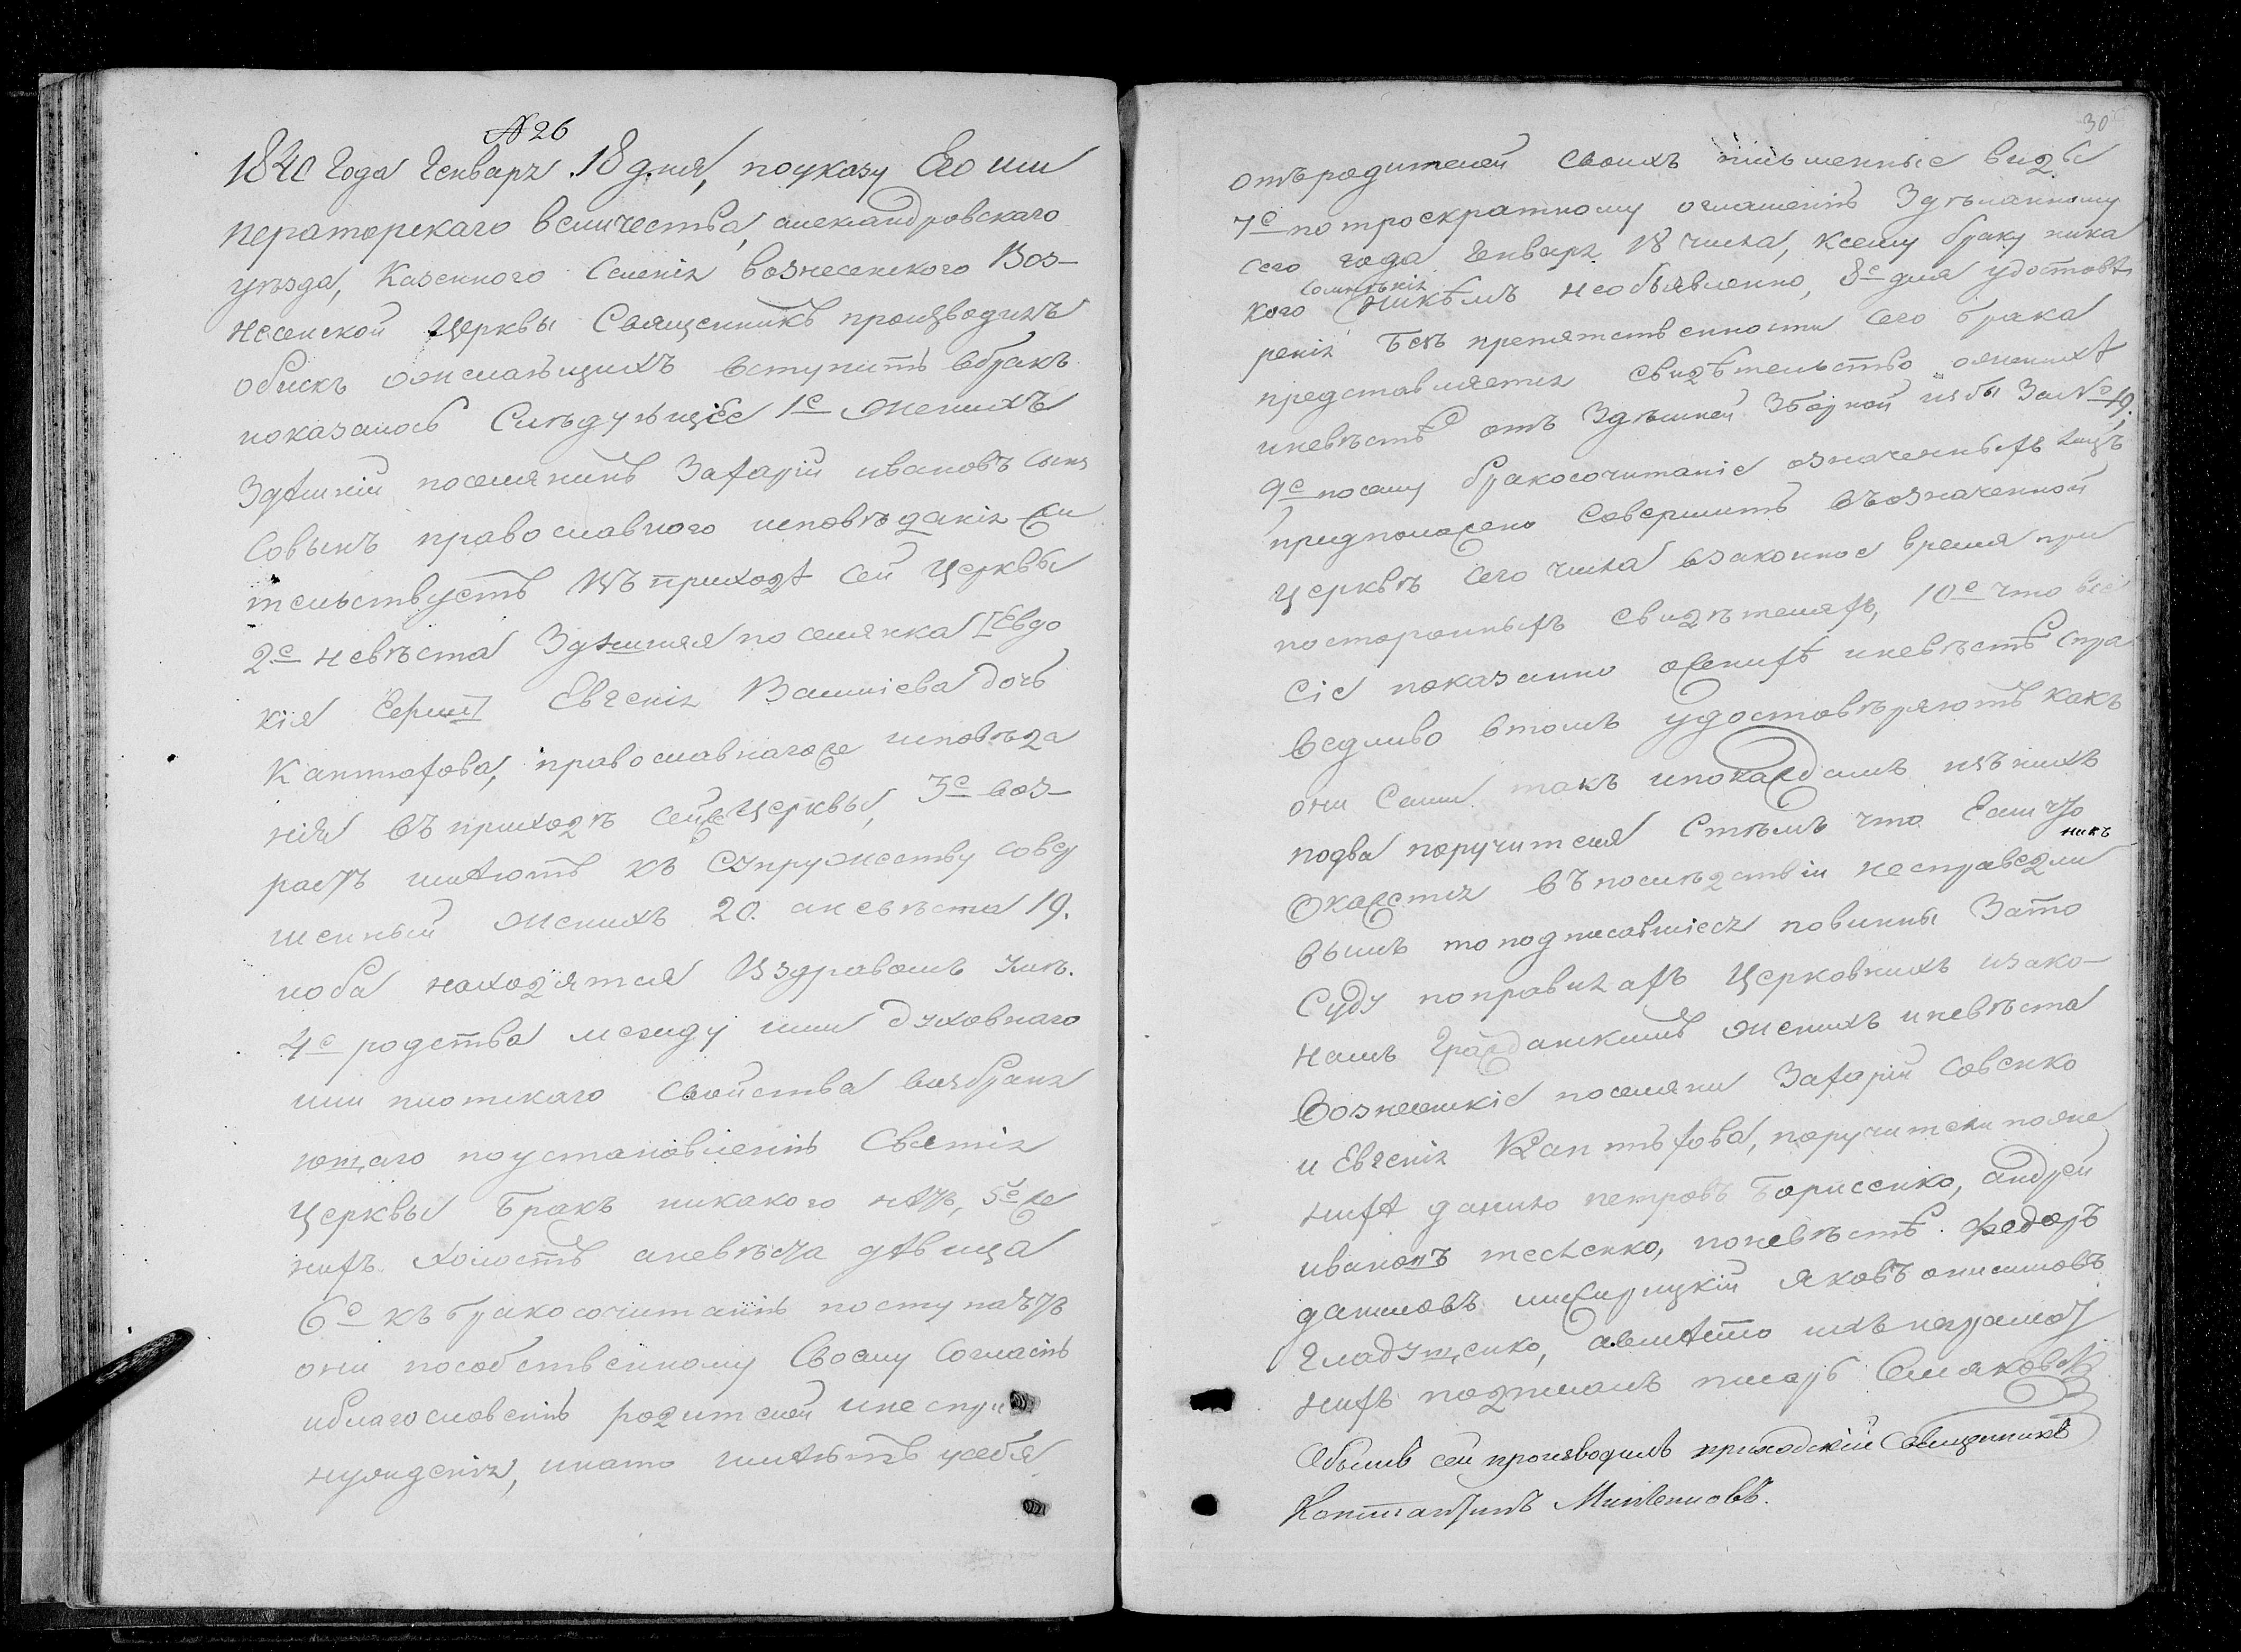 № 26
1840 Года Генваря 18 дня, поуказу Его им
ператорскаго величества, александровскаго
уезда, Казенного Селенія вознесенского Воз-
несенской Церквы Священникъ производилъ
обискъ ожелающихъ вступить вбракъ
показалось Слѣдующіее 1е Женихъ
Здѣшній поселянинъ Захарій ивановъ сынъ
Совынъ православного исповѣданія Жи
тельствуетъ въ приходѣ сей Церквы
2е невѣста Здѣшняя поселянка [Евдо
кія Серги] Евгенія Василіева дочь
Каптюхова, православнагоже исповѣда
нія въ приходѣ сейже Церквы, 3е воз-
растъ имѣютъ къ Супружеству совер
шенный Женихъ 20. аневѣста 19.
иоба находятся Вздравомъ умѣ.
4е родства между ими духовнаго
или плотскаго свойства возбраня
ющаго поустановленію Святія
Церквы бракъ никакого нѣтъ, 5е Же
нихъ холостъ аневѣста дѣвица
6е къ бракосочитанію поступаютъ
они пособственному Своему Согласію
иблагословенію родителей инеспри
нужденія, инато имѣютъ усебя
30
отъродителей своихъ письменные виды
7е потроекратному оглашенію Здѣланному
сего года Генваря 18 числа, ксему браку ника
сомненія
кого никѣмъ необъявленно, 8е для удостовѣ
ренія безъ препятственности сего брака
представляется свидѣтельство оженихѣ
иневѣстѣ отъ Здѣшней Зборной избы За № 49.
9е посему бракосочитаніе означенныхъ лицъ
придположено Совершить въозначенной
церквѣ сего числа взаконное время при
посторонныхъ свидѣтеляхъ, 10е что всё
сіе показанно оженихѣ иневѣстѣ спра
ведливо втомъ удостовѣряютъ какъ
они сами такъ ипокаждомъ изъ нихъ
подва поручителя Стѣмъ что Если что
никъ
Окажется въ послѣдствіи несправедли
вымъ то подписавшіесь повинны Зато
Суду поправилахъ Церковнихъ изако-
намъ Гражданскимъ Женихъ иневѣста
Вознесенскіе поселяни Захарій Совенко
и Евгенія Каптюхова, поручители поже
нихѣ данило петровъ Борисенко, андрей
ивановъ тесленко, поневѣстѣ федоръ
даниловъ яковъ онисимовъ
Гладущенко, авмѣсто ихъ неграмот
нихъ подписалъ писарь
Обыскъ сей производилъ приходскій Священникъ
Константинъ